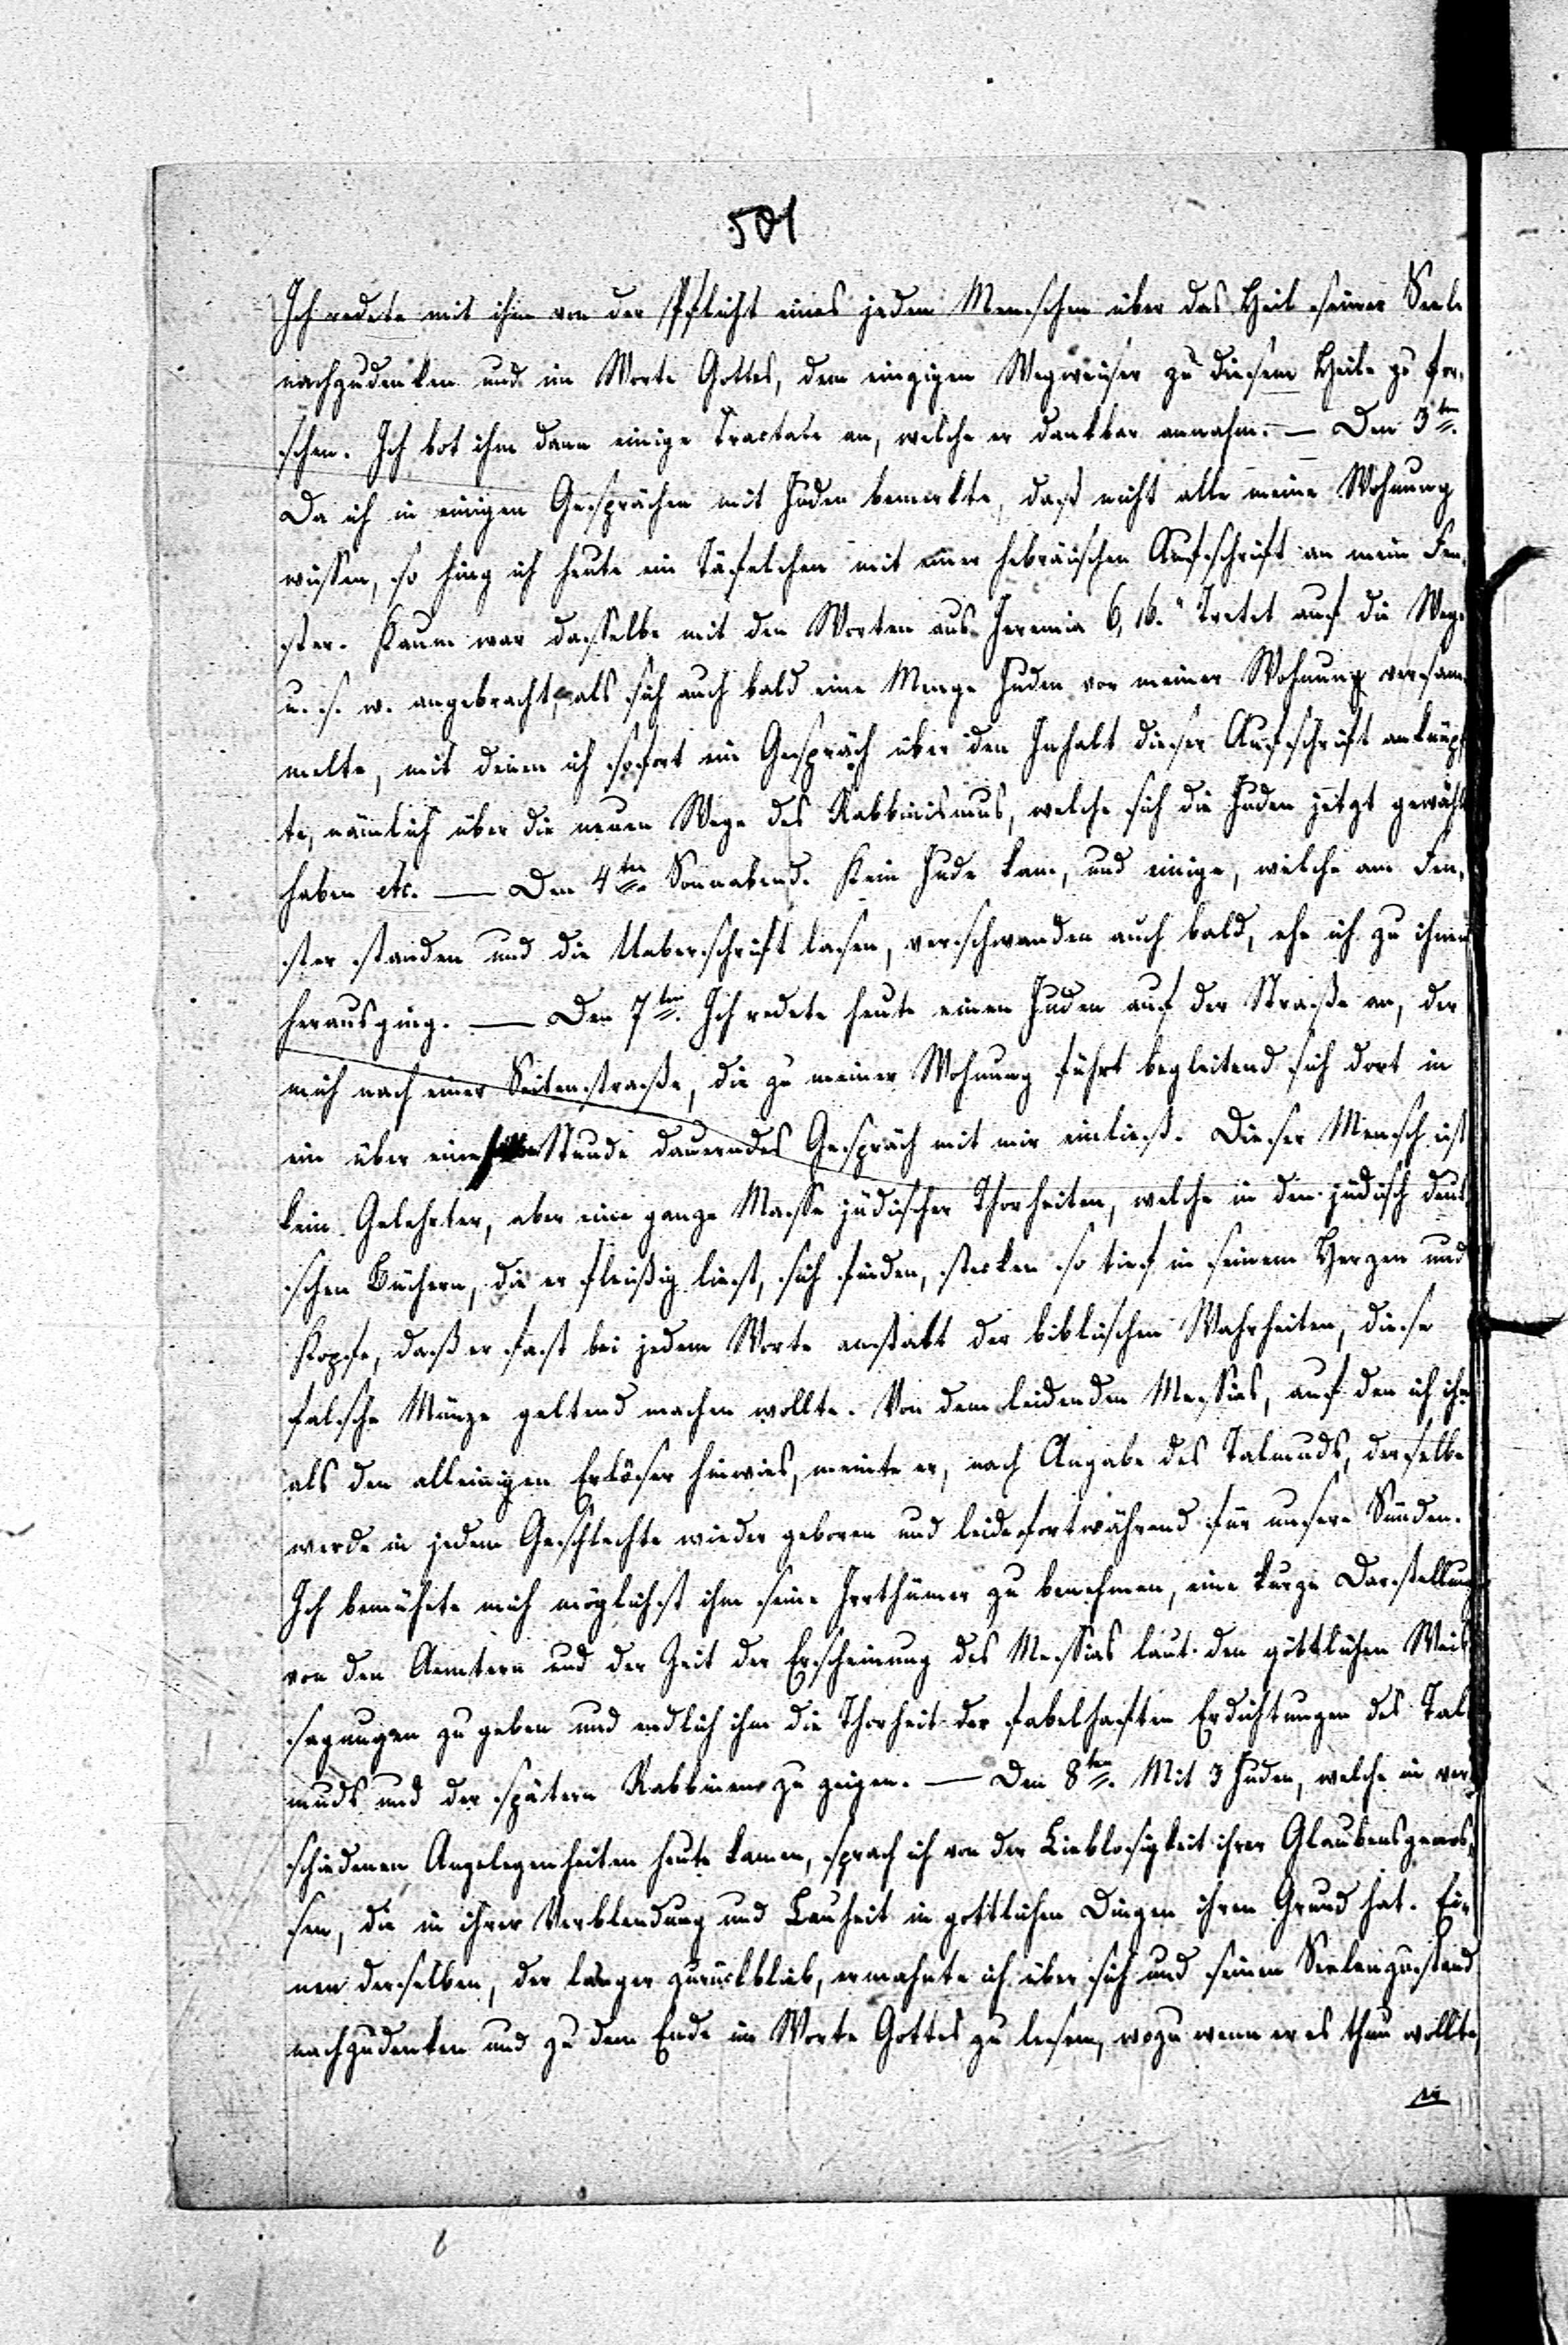 501
Ich redete mit ihm von der Pflicht eines jeden Menschen über das Heil seiner Seele
nachzudenken und im Worte Gottes, dem einzigen Wegweiser zu diesem Heile zu for-
schen. Ich bot ihm dann einige Tractate an, welche er dankbar annahm. — Den 3ten.
Da ich in einigen Gesprächen mit Juden bemerkte, daß nicht alle meine Wohnung
wissen, so hing ich heute ein Täfelchen mit einer hebräischen Aufschrift an mein Fen-
ster. Kaum war dasselbe mit den Worten aus Jeremia 6, 16. "Tretet auf die Wege
u. s. w. angebracht, als sich auch bald eine Menge Juden vor meiner Wohnung versam-
melte, mit denen ich sofort ein Gespräch über den Inhalt dieser Aufschrift anknüpf-
te, nämlich über die neuen Wege des Rabbinismus, welche sich die Juden jetzt gewählt
haben etc. — Den 4ten Sonnabend. Kein Jude kam, und einige, welche am Fen-
ster standen und die Ueberschrift lasen, verschwanden auch bald, ehe ich zu ihnen
herausging. — Den 7ten. Ich redete heute einen Juden auf der Straße an, der
mich nach einer Seitenstraße, die zu meiner Wohnung führt begleitend sich dort in
ein über eine Stunde dauerndes Gespräch mit mir einließ. Dieser Mensch ist
kein Gelehrter, aber eine ganze Masse jüdischer Thorheiten, welche in den jüdisch deut-
schen Büchern, die er fleißig liest, sich finden, stecken so tief in seinem Herzen und
Kopfe, daß er fast bei jedem Worte anstatt der biblischen Wahrheiten, diese
falsche Münze geltend machen wollte. Von dem leidenden Messias, auf den ich ihn
als den alleinigen Erlöser hinwies, meinte er, nach Angabe des Talmuds, derselbe
werde in jedem Geschlechte wieder geboren und leide fortwährend für unsere Sünden.
Ich bemühte mich möglichst ihm seine Irrthümer zu benehmen, eine kurze Darstellung
von den Aemtern und der Zeit der Erscheinung des Messias laut den göttlichen Weis-
sagungen zu geben und endlich ihm die Thorheit der fabelhaften Erdichtungen des Tal-
muds und der spätern Rabbinen zu zeigen. — Den 8ten. Mit 3 Juden, welche in ver-
schiedenen Angelegenheiten heute kamen, sprach ich von der Lieblosigkeit ihrer Glaubensgenos-
sen, die in ihrer Verblendung und Lauheit in gottlichen Dingen ihren Grund hat. Ei-
nen derselben, der länger zurückblieb, ermahnte ich über sich und seinen Seelenzustand
nachzudenken und zu dem Ende im Worte Gottes zu lesen, wozu wenn er es thun wollte,